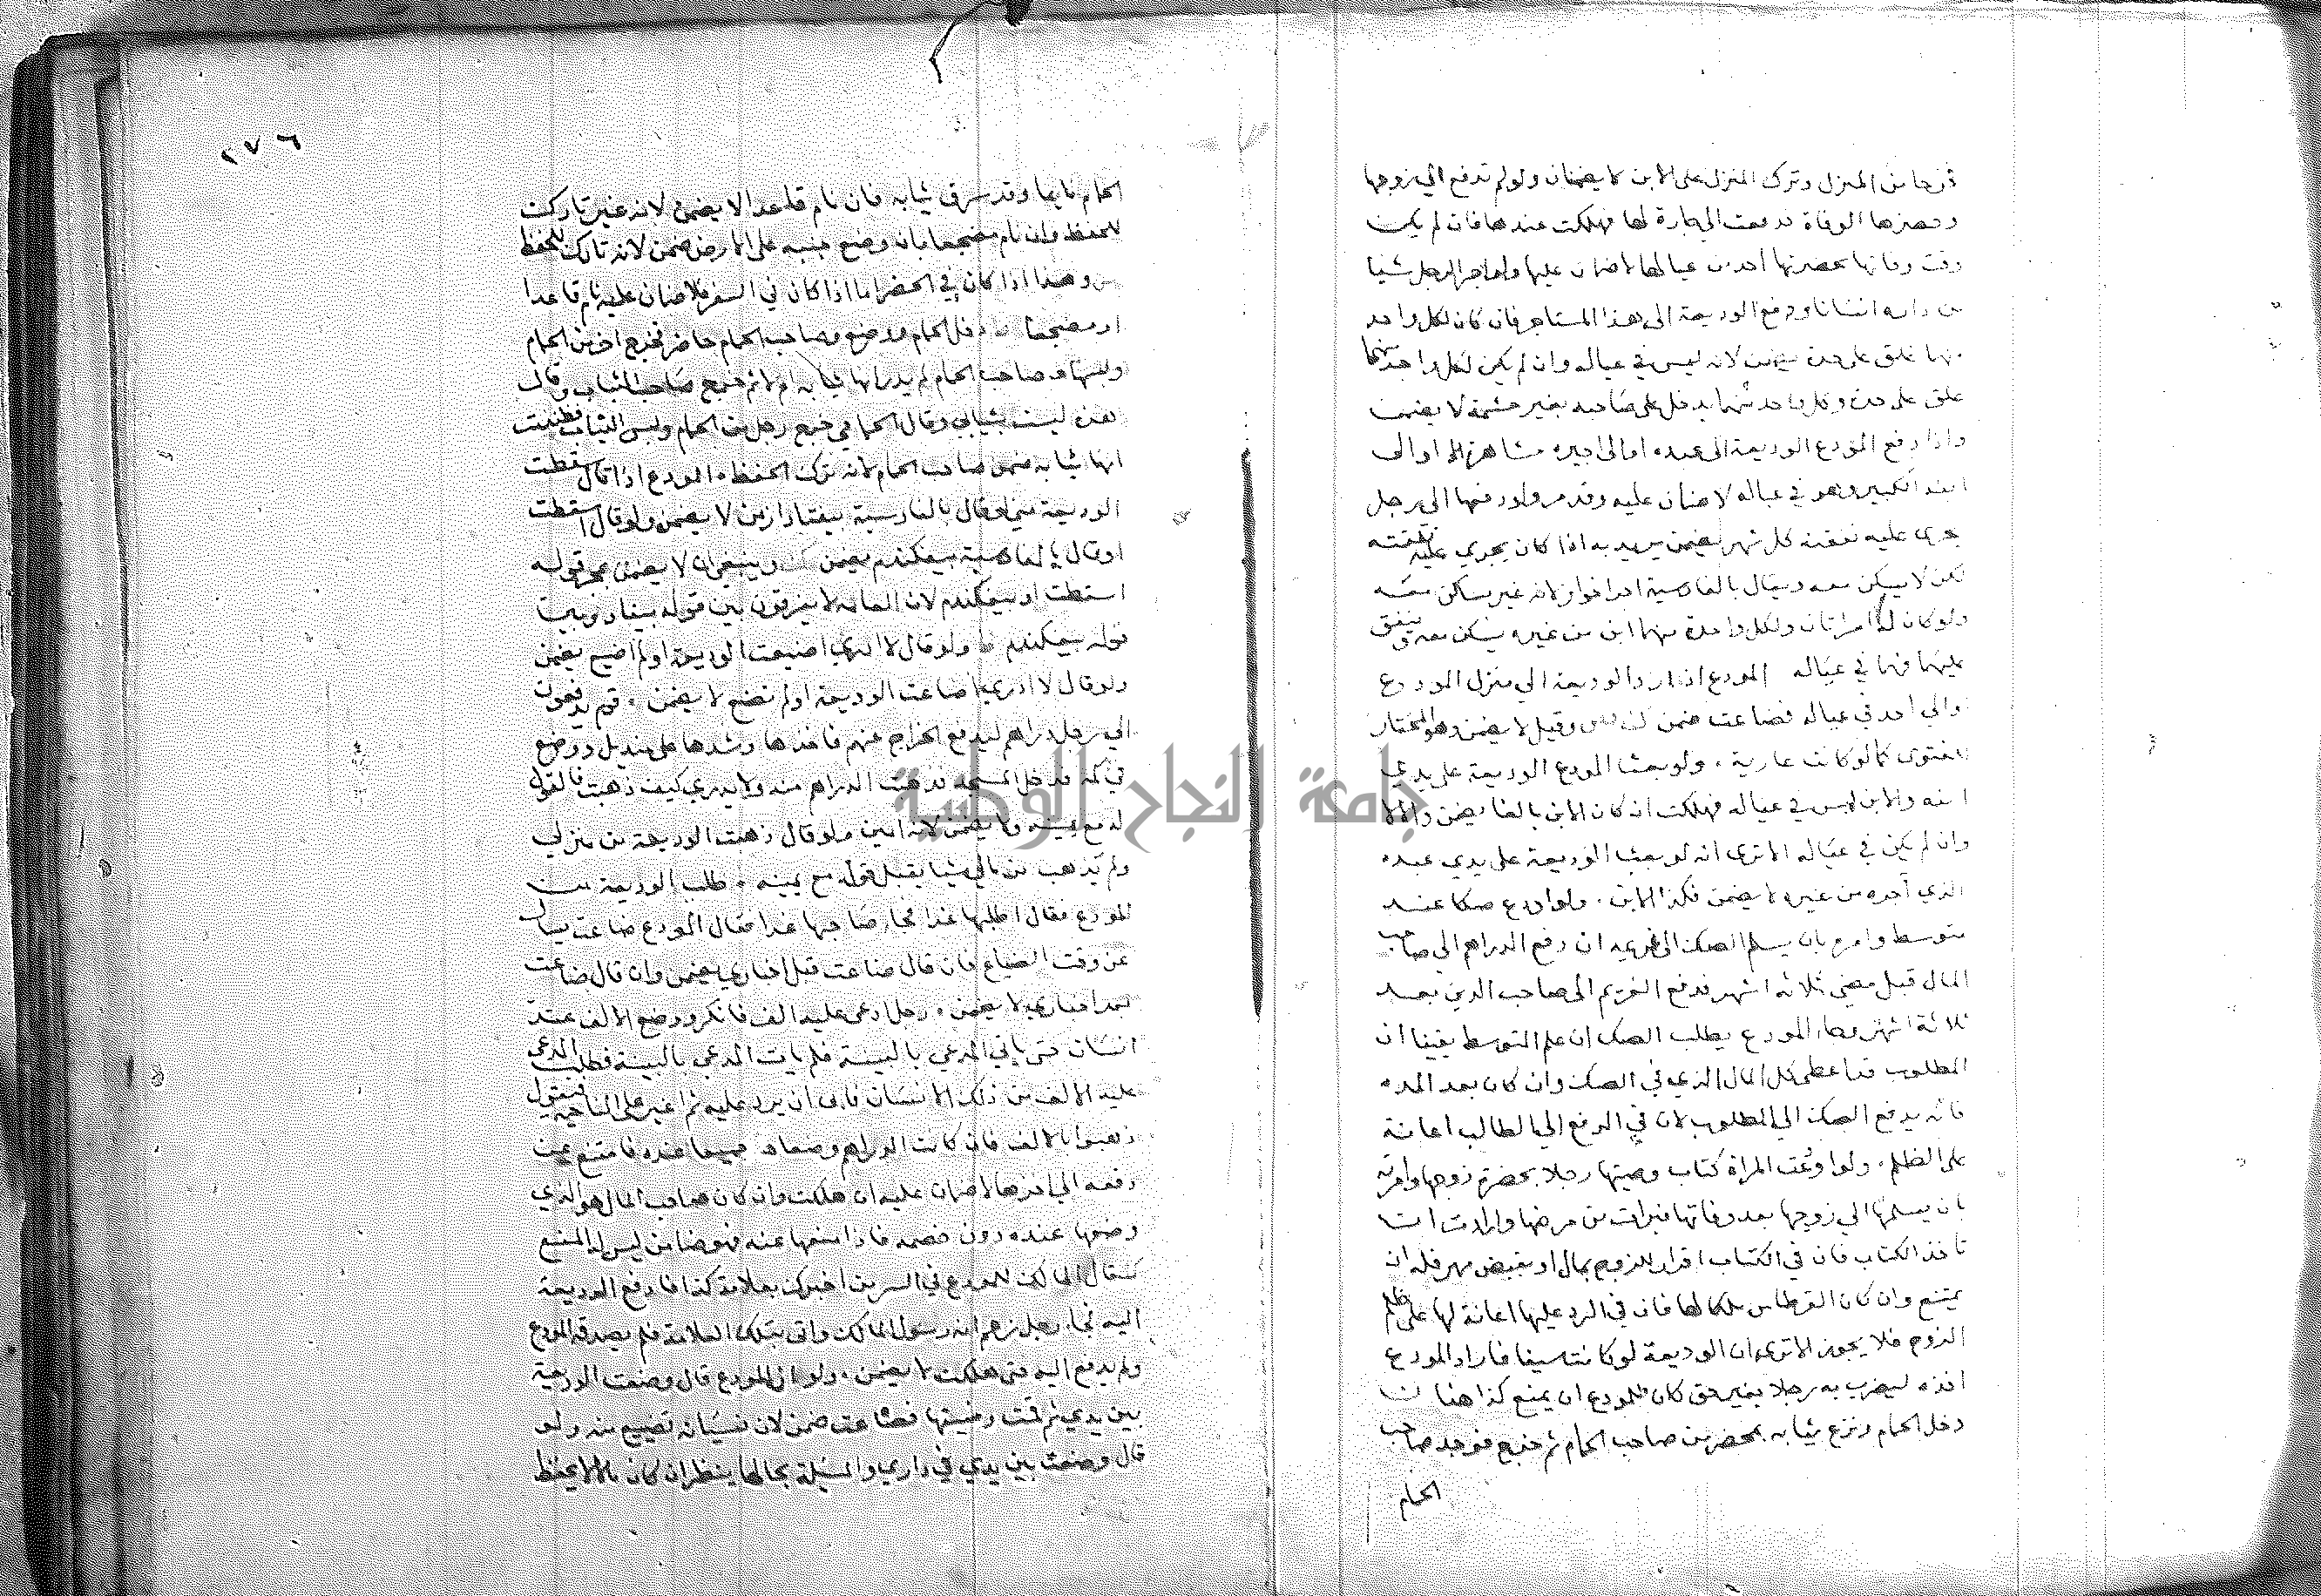 فخرجا من المنزل وترك المنزل على الابن لا يضمنان ولو لم تدفع الي زوجها
وحضرها الوفاة فدفعت الي جارة لها فهلكت عندها فان لم يكن
وقت وفاتها بحضرتها احد من عيالها لا ضمان عليها ولو اجر الرجل شيا
من داره انسانا ودفع الوديعة الى هذا المستاجر فان كان لكل واحد
منهما غلق على حدة يضمن لانه ليس في عياله وان لم يكن لكل واحد منهما
غلق على حدة وكل واحد منهما يدخل على صاحبه بغير حشمة لا يضمن
واذا دفع المودع الوديعة الى عبده او الى اجيره مشاهرة او الى
ابنه الكبير وهو في عياله لا ضمان عليه وقد مر ولو دفعها الى رجل
يجري عليه نفقته كل شهر يضمن يريد به اذا كان يجري عليه نفقته
لكن لا يسكن معه ويقال بالفارسية اجراخوار لانه غير ساكن معه
ولو كان له امراتان ولكل واحدة منهما ابن من غيره يسكن معه وينفق
عليهما فهما في عياله المودع اذا رد الوديعة الي منزل المودع
او الي احد في عياله فضاعت ضمن وقيل لا يضمن وهو المختار
للفتوى كما لو كانت عارية ولو بعث المودع الوديعة على يدي
ابنه والابن ليس في عياله فهلكت ان كان الابن بالغا يضمن والا لا
وان لم يكن في عياله الا ترى انه لو بعث الوديعة على يدي عبده
الذي آجره من غيره لا يضمن فكذا الابن ولو اودع صكا عند
متوسط وامره بان يسلم الصك الى غريمه ان دفع الدراهم الي صاحب
المال قبل مضي ثلاثة اشهر فدفع الغريم الى صاحب الدين بعد
ثلاثة اشهر وجاء المودع يطلب الصك ان علم المتوسط يقينا ان
المطلوب قد اعطى كل المال الذي في الصك وان كان بعد المده
فانه يدفع الصك الي المطلوب لان في الدفع الي الطالب اعانة
على الظلم ولو اودعت المراة كتاب وصيتها رجلا بحضرة زوجها وامرته
بان يسلمها الي زوجها بعد وفاتها فبرات من مرضها وارادت ان
تاخذ الكتاب فان في الكتاب اقرار للزوج بمال او بقبض مهر فله ان
يمتنع وان كان القرطاس ملكا لها فان في الرد عليها اعانة لها على ظلم
الزوج فلا يجوز الا ترى ان الوديعة لو كانت سيفا فاراد المودع
اخذه ليضرب به رجلا بغير حق كان للمودع ان يمنع كذا هنا
دخل الحمام ونزع ثيابه بمحضر من صاحب الحمام ثم خرج فوجد صاحب
الحمام
١٧٦
الحمام نايما وقد سرق ثيابه فان نام قاعدا لا يضمن لانه غير تارك
للحفظ وان نام مضجعا بان وضع جنبه على الارض ضمن لانه تارك للحفظ
وهذا اذا كان في الحضر اما اذا كان في السفر فلا ضمان عليه نام قاعدا
او مضجعا دخل الحمام ووضع وصاحب الحمام حاضر فخرج اخر من الحمام
ولبسها وصاحب الحمام لم يدر انها ثيابه ام لا ثم خرج صاحب الثياب وقال
هذه ليست بثيابي وقال الحمامي خرج رجل من الحمام ولبس الثياب فظننت
انها ثيابه ضمن صاحب الحمام لانه ترك الحفظ المودع اذا قال سقطت
الوديعة مني او قال بالفارسية بيفتاد از من لا يضمن ولو قال اسقطت
او قال بالفارسية بيفكندم يضمن وينبغي ان لا يضمن بمجرد قوله
اسقطت او بيفكندم لان العامة لا يفرقون بين قوله بيفتاد وبين
قوله بيفكندم ولو قال لا ادري اضيعت الوديعة او لم اضيع يضمن
ولو قال لا ادري اضاعت الوديعة او لم تضع لا يضمن قوم يدفعون
الي رجل دراهم ليدفع الخراج عنهم فاخذها وشدها على منديل ووضع
في كمه فدخل المسجد فذهبت الدراهم منه ولا يدري كيف ذهبت فالقول
له مع يمينه ولا يضمن لانه امين ولو قال ذهبت الوديعة من منزلي
ولم يذهب من مالي شيا يقبل قوله مع يمينه طلب الوديعة من
المودع فقال اطلبها غدا فجاء صاحبها غدا فقال المودع ضاعت يسال
عن وقت الضياع فان قال ضاعت قبل اخباري يضمن وان قال ضاعت
بعد اخباري لا يضمن رجل ادعى عليه الف فانكر ووضع الالف عند
انسان حتى ياتي المدعي بالبينة فلم يات المدعي بالبينة فطلب المدعى
عليه الالف من ذلك الانسان فابى ان يرد عليه ثم اغير على الناحية فيقول
ذهبوا بالالف فان كانت الدراهم وضعاها جميعا عنده فامتنع عن
دفعه الي احدهما لا ضمان عليه ان هلكت وان كان صاحب المال هو الذي
وضعها عنده دون خصمه فاذا منعها عنه فهو ضامن ليس له المنع
فقال المالك للمودع في السر من اخبرك بعلامة كذا فادفع الوديعة
اليه فجاء رجل زعم انه رسول المالك واتى بتلك العلامة فلم يصدقه المودع
ولم يدفع اليه حتى هلكت لا يضمن ولو ان المودع قال وضعت الوديعة
بين يدي ثم قمت ونسيتها فضاعت ضمن لان نسيانه تضييع منه ولو
قال وضعت بين يدي في داري والمسئلة بحالها ينظر ان كان مالا لا يحفظ
جامعة النجاح الوطنية